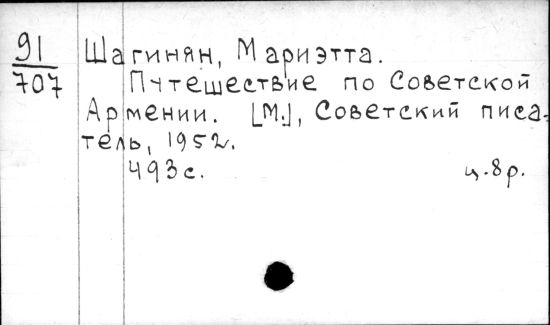 91
707
Шагинян, Мариэтта.
Путешествие по Советской
Армении. [М.], Советский писа-
тель, 1952.
493с.
ц.8р.